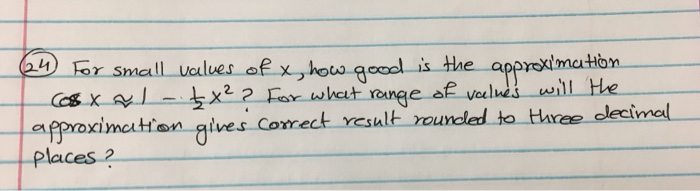 (24) For small values of x, how good is the approximation
cos x ≈ 1 - ½ x² ? For what range of values will the
approximation gives correct result rounded to three decimal
places ?